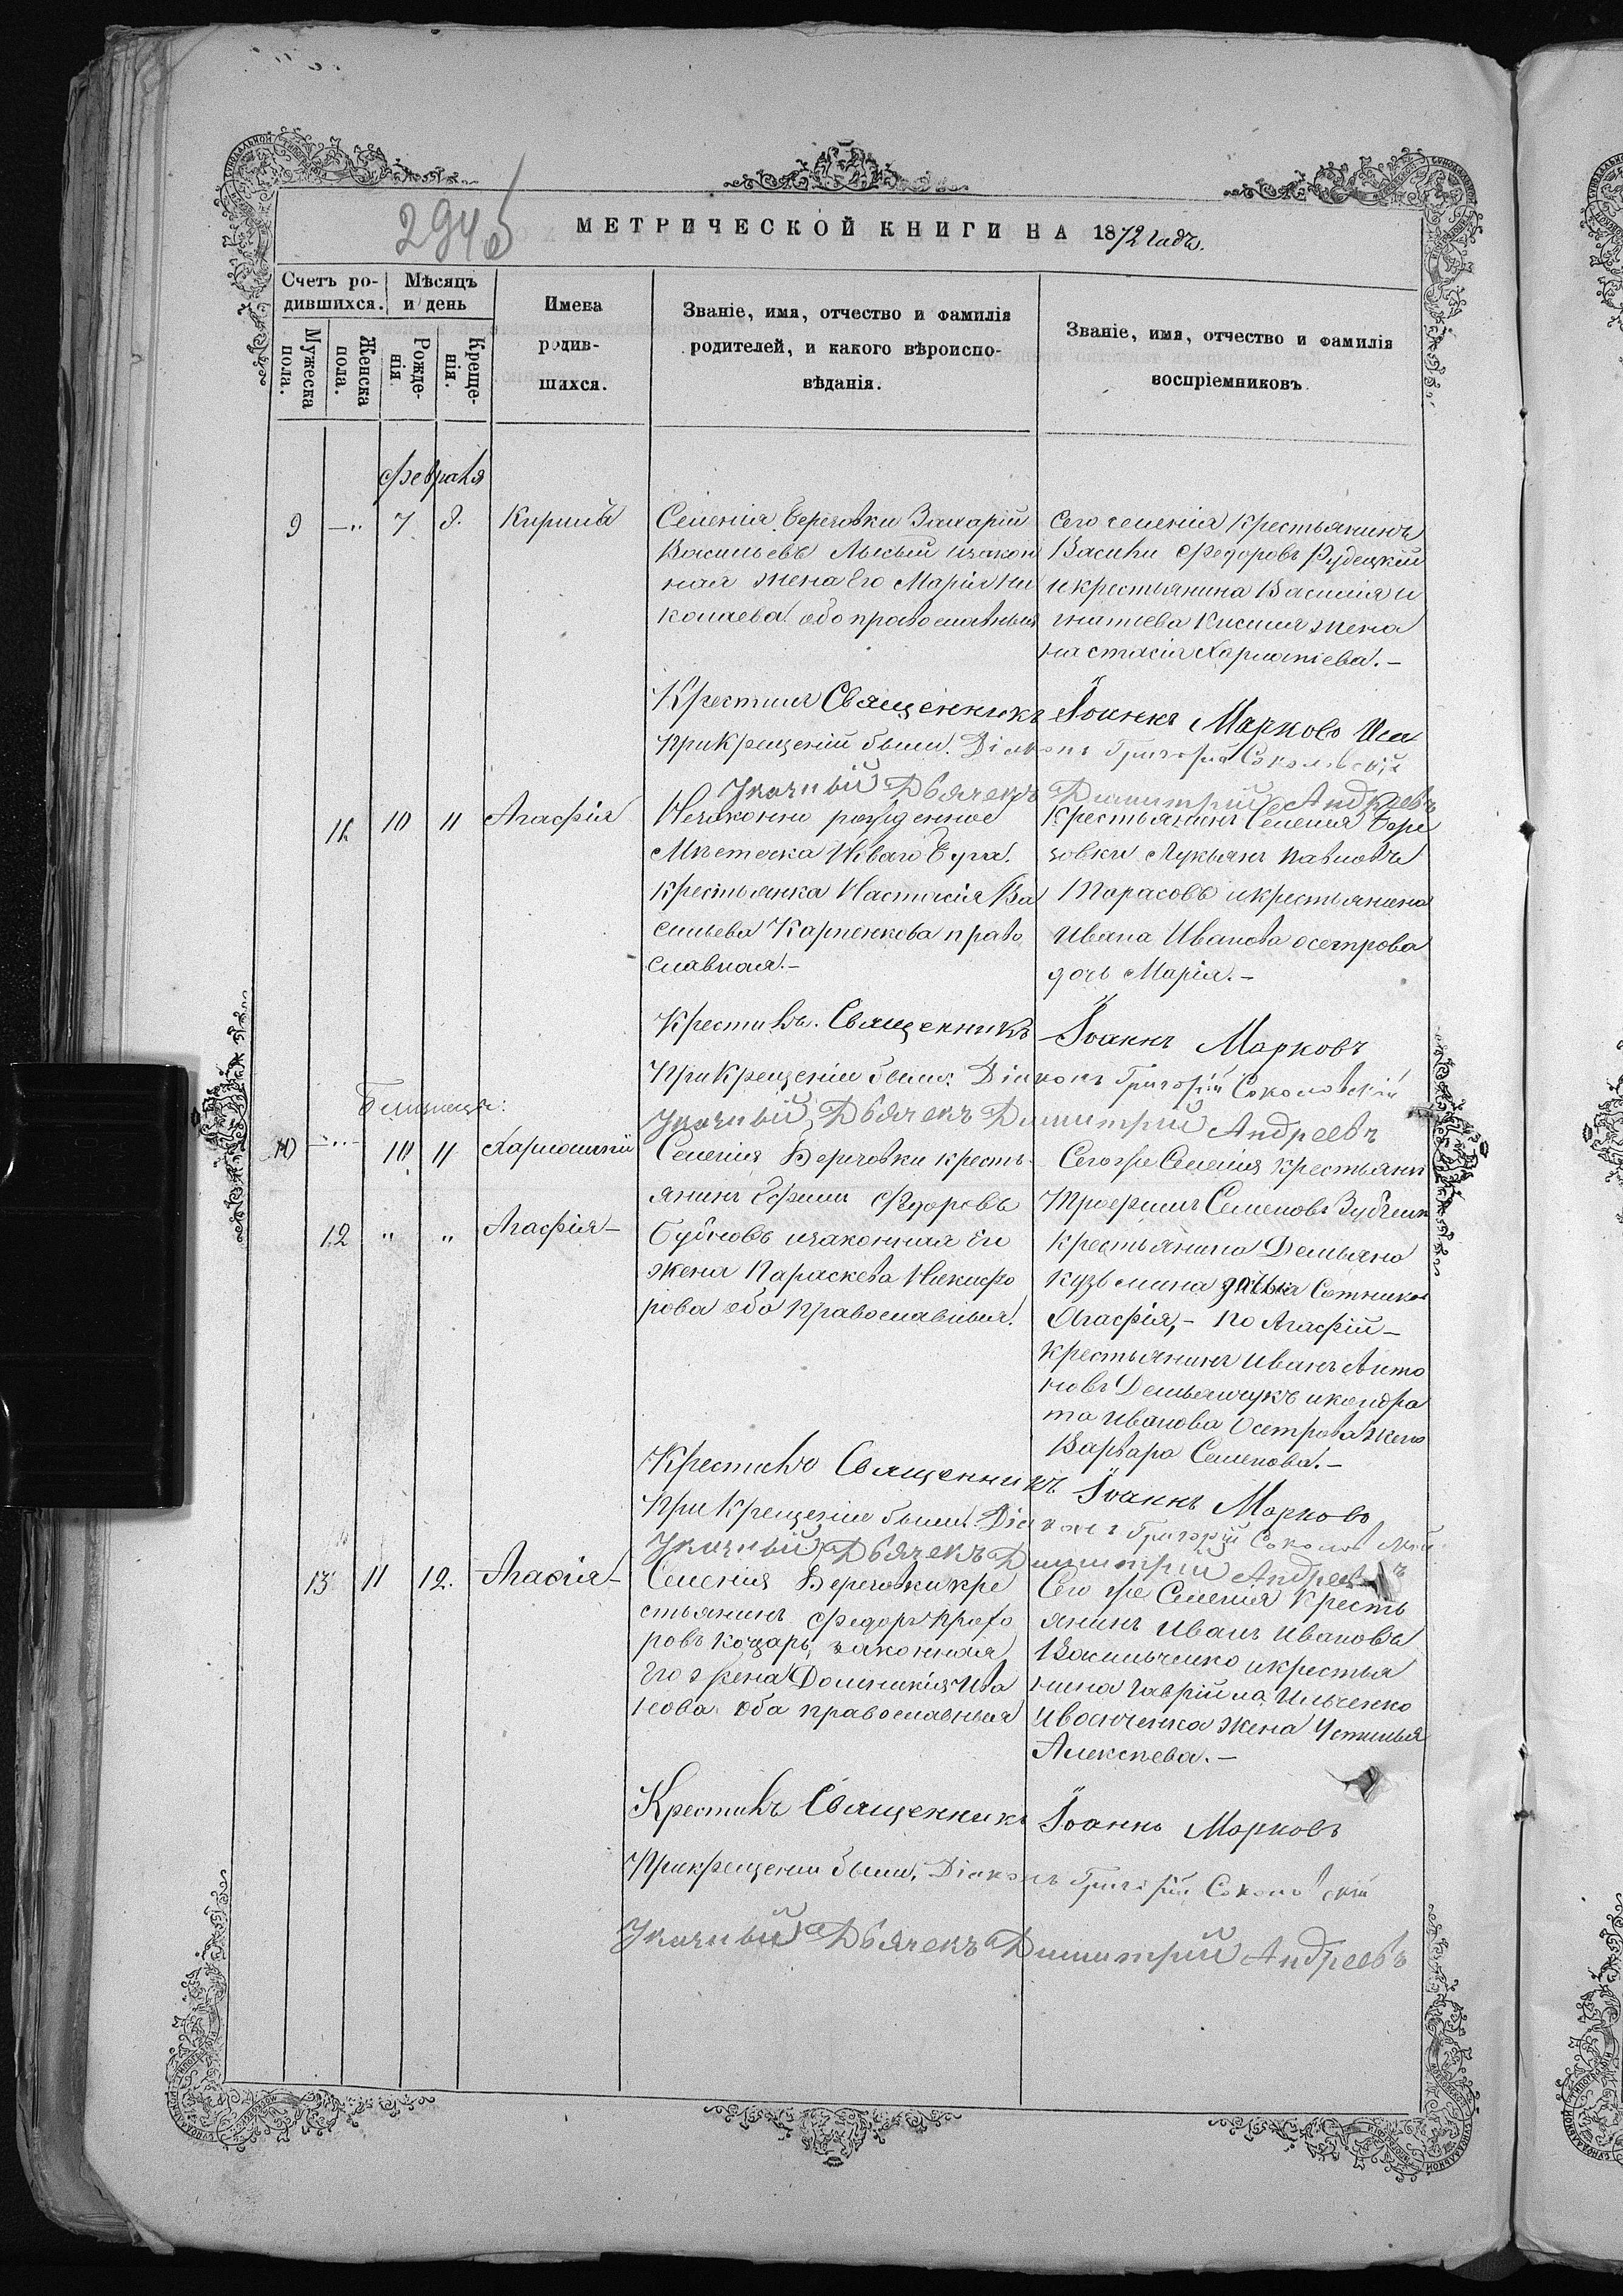 294 об
МЕТРИЧЕСКОЙ КНИГИ НА 1872 годъ.
Счетъ ро-
дившихся.
Мѣсяцъ
и день
Мужеска
пола.
Женска
пола.
Рожде-
нія.
Креще-
нія.
Имена
родив-
шихся.
Званіе, имя, отчество и фамилія
родителей, и какого вѣроиспо-
вѣданія.
Званіе, имя, отчество и фамилія
воспріемниковъ.
февраля
9 —„ 7 8. Кирилъ
Селенія Березовки Захарій
Васильевъ Лысый изакон
ная жена его Марія Ни
колаева обо православныя
Сего селенія крестьянинъ
Василій Федоровъ Рудецкій
икрестьянина Василія И
гнатіева жена
настасія Харлампіева.—
Крестил Священникъ Іоаннъ Марковъ
При крещеніи были: Діаконъ Григорій Соколовскій
Указный Дьячекъ Димитрій Андреевъ
11 10 11 Агафія
Незаконно рожденное
Мѣстечка Новаго Буга.
крестьянка Настасія Ва
сильева Карпенкова право
славная.—
Крестьянинъ Селенія Бере
зовки Лукьянъ Павловъ
Тарасовъ икрестьянина
Ивана Иванова осетрова
дочь Марія.—
Крестилъ. Священникъ Іоаннъ Марковъ
При Крещеніи были: Діаконъ Григорій Соколовскій
Указный Дьячекъ Димитрій Андреевъ
Близнецы:
10 —„— 10 11 Харлампій
12 „ „ Агафія—
Селенія Березовки кресть
янинъ Ефимъ Федоровъ
изаконная Его
жена Параскева Никифо
рова обо Православныя.
Сегоже Селенія крестьянинъ
Трофимъ Семеновъ
крестьянина Демьяна
Кузьмина
Агафія,— По Агафіи—
крестьянинъ Иванъ Анто
новъ Демьянчукъ икондра
та Иванова Осетрова жена
Варвара Семенова.—
Крестилъ Священникъ Іоаннъ Марковъ
При Крещеніи были: Діаконъ Григорій Соколовскій
Указный Дьячекъ Димитрій Андреевъ
13 11 12. Агафія—
Селенія Березовки кре
стьянинъ Федоръ Прохо
ровъ Коцарь, законная
Его жена Домникія Ива
нова Оба православныя
Сего же Селенія Кресть
янинъ Иванъ Ивановъ
Васильченко икрестья
нина Гавріила Ильченко
Иванченка жена Устинья
Алексѣева.—
Крестилъ Священникъ Іоаннъ Марковъ
При крещеніи были; Діаконъ Григорій Соколовскій
Указный Дьячекъ Димитрій Андреевъ